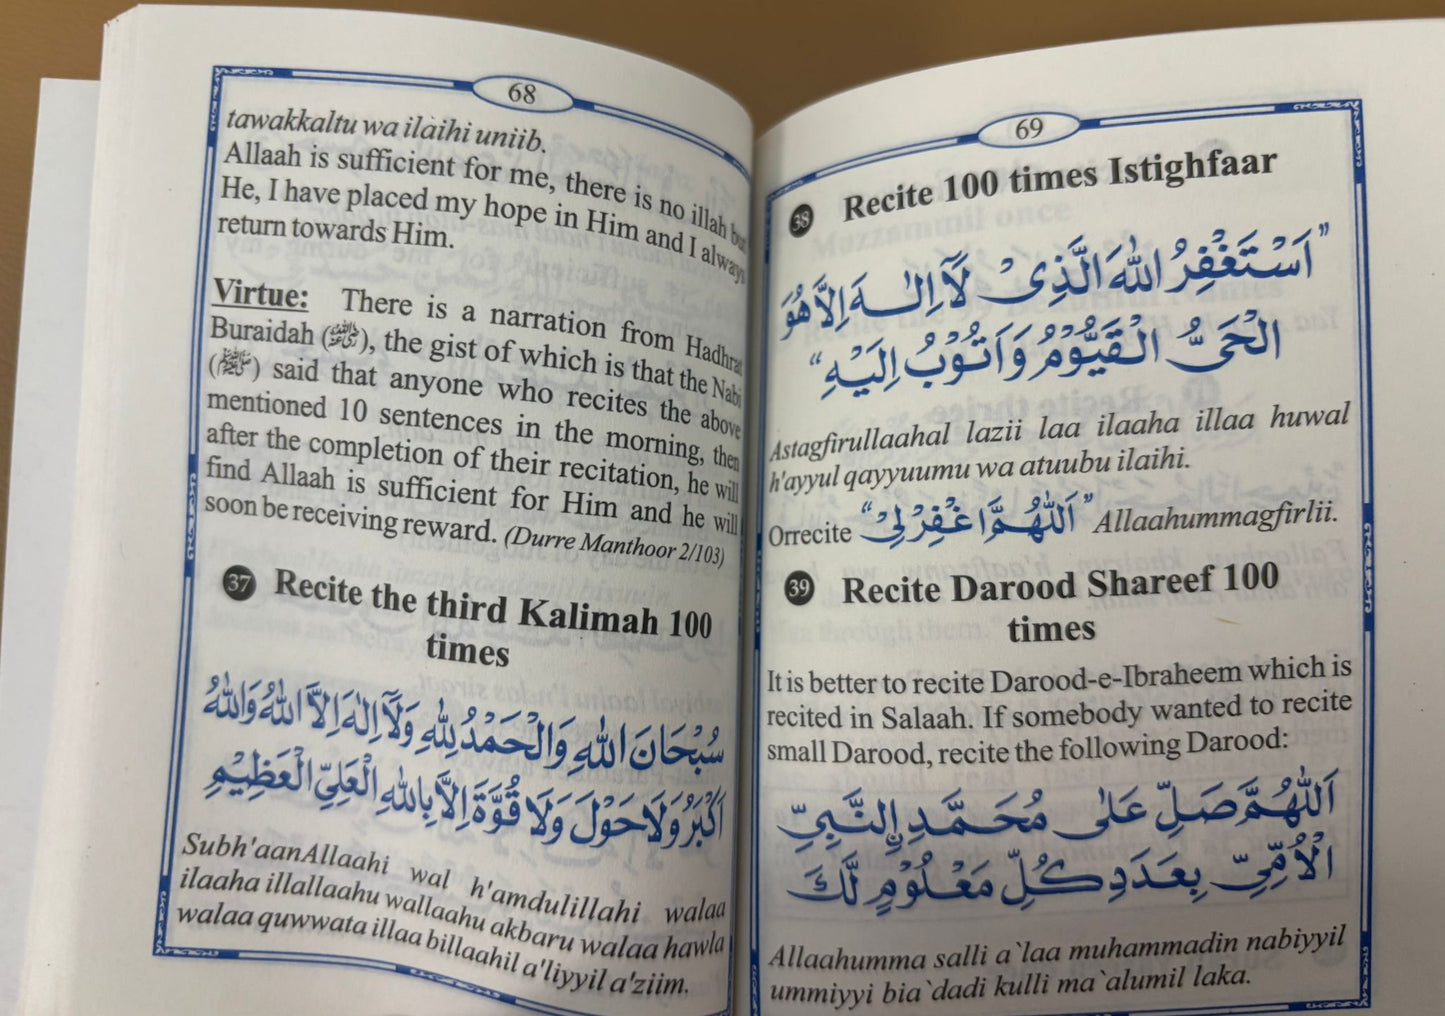 68
tawakkaltu wa ilaihi uniib.
Allaah is sufficient for me, there is no illah but
He, I have placed my hope in Him and I always
return towards Him.
Virtue: There is a narration from Hadhrat
Buraidah (رضي الله عنه), the gist of which is that the Nabi
(ﷺ) said that anyone who recites the above
mentioned 10 sentences in the morning, then
after the completion of their recitation, he will
find Allaah is sufficient for Him and he will
soon be receiving reward. (Durre Manthoor 2/103)
37 Recite the third Kalimah 100
times
سُبْحَانَ اللهِ وَالْحَمْدُ لِلّٰهِ وَلَآ اِلٰهَ اِلَّا اللهُ وَاللهُ
اَكْبَرُ وَلَا حَوْلَ وَلَا قُوَّةَ اِلَّا بِاللهِ الْعَلِيِّ الْعَظِيْمِ
Subh'aanAllaahi wal h'amdulillahi walaa
ilaaha illallaahu wallaahu akbaru walaa hawla
walaa quwwata illaa billaahil a'liyyil a'ziim.
69
38 Recite 100 times Istighfaar
"اَسْتَغْفِرُ اللهَ الَّذِىْ لَآ اِلٰهَ اِلَّا هُوَ
الْحَىُّ الْقَيُّوْمُ وَاَتُوْبُ اِلَيْهِ"
Astagfirullaahal lazii laa ilaaha illaa huwal
h'ayyul qayyuumu wa atuubu ilaihi.
Orrecite "اَللّٰهُمَّ اغْفِرْ لِيْ" Allaahummagfirlii.
39 Recite Darood Shareef 100
times
It is better to recite Darood-e-Ibraheem which is
recited in Salaah. If somebody wanted to recite
small Darood, recite the following Darood:
اَللّٰهُمَّ صَلِّ عَلٰى مُحَمَّدِ ࣙالنَّبِيِّ
الْاُمِّيِّ بِعَدَدِ كُلِّ مَعْلُوْمٍ لَّكَ
Allaahumma salli a`laa muhammadin nabiyyil
ummiyyi bia`dadi kulli ma`alumil laka.